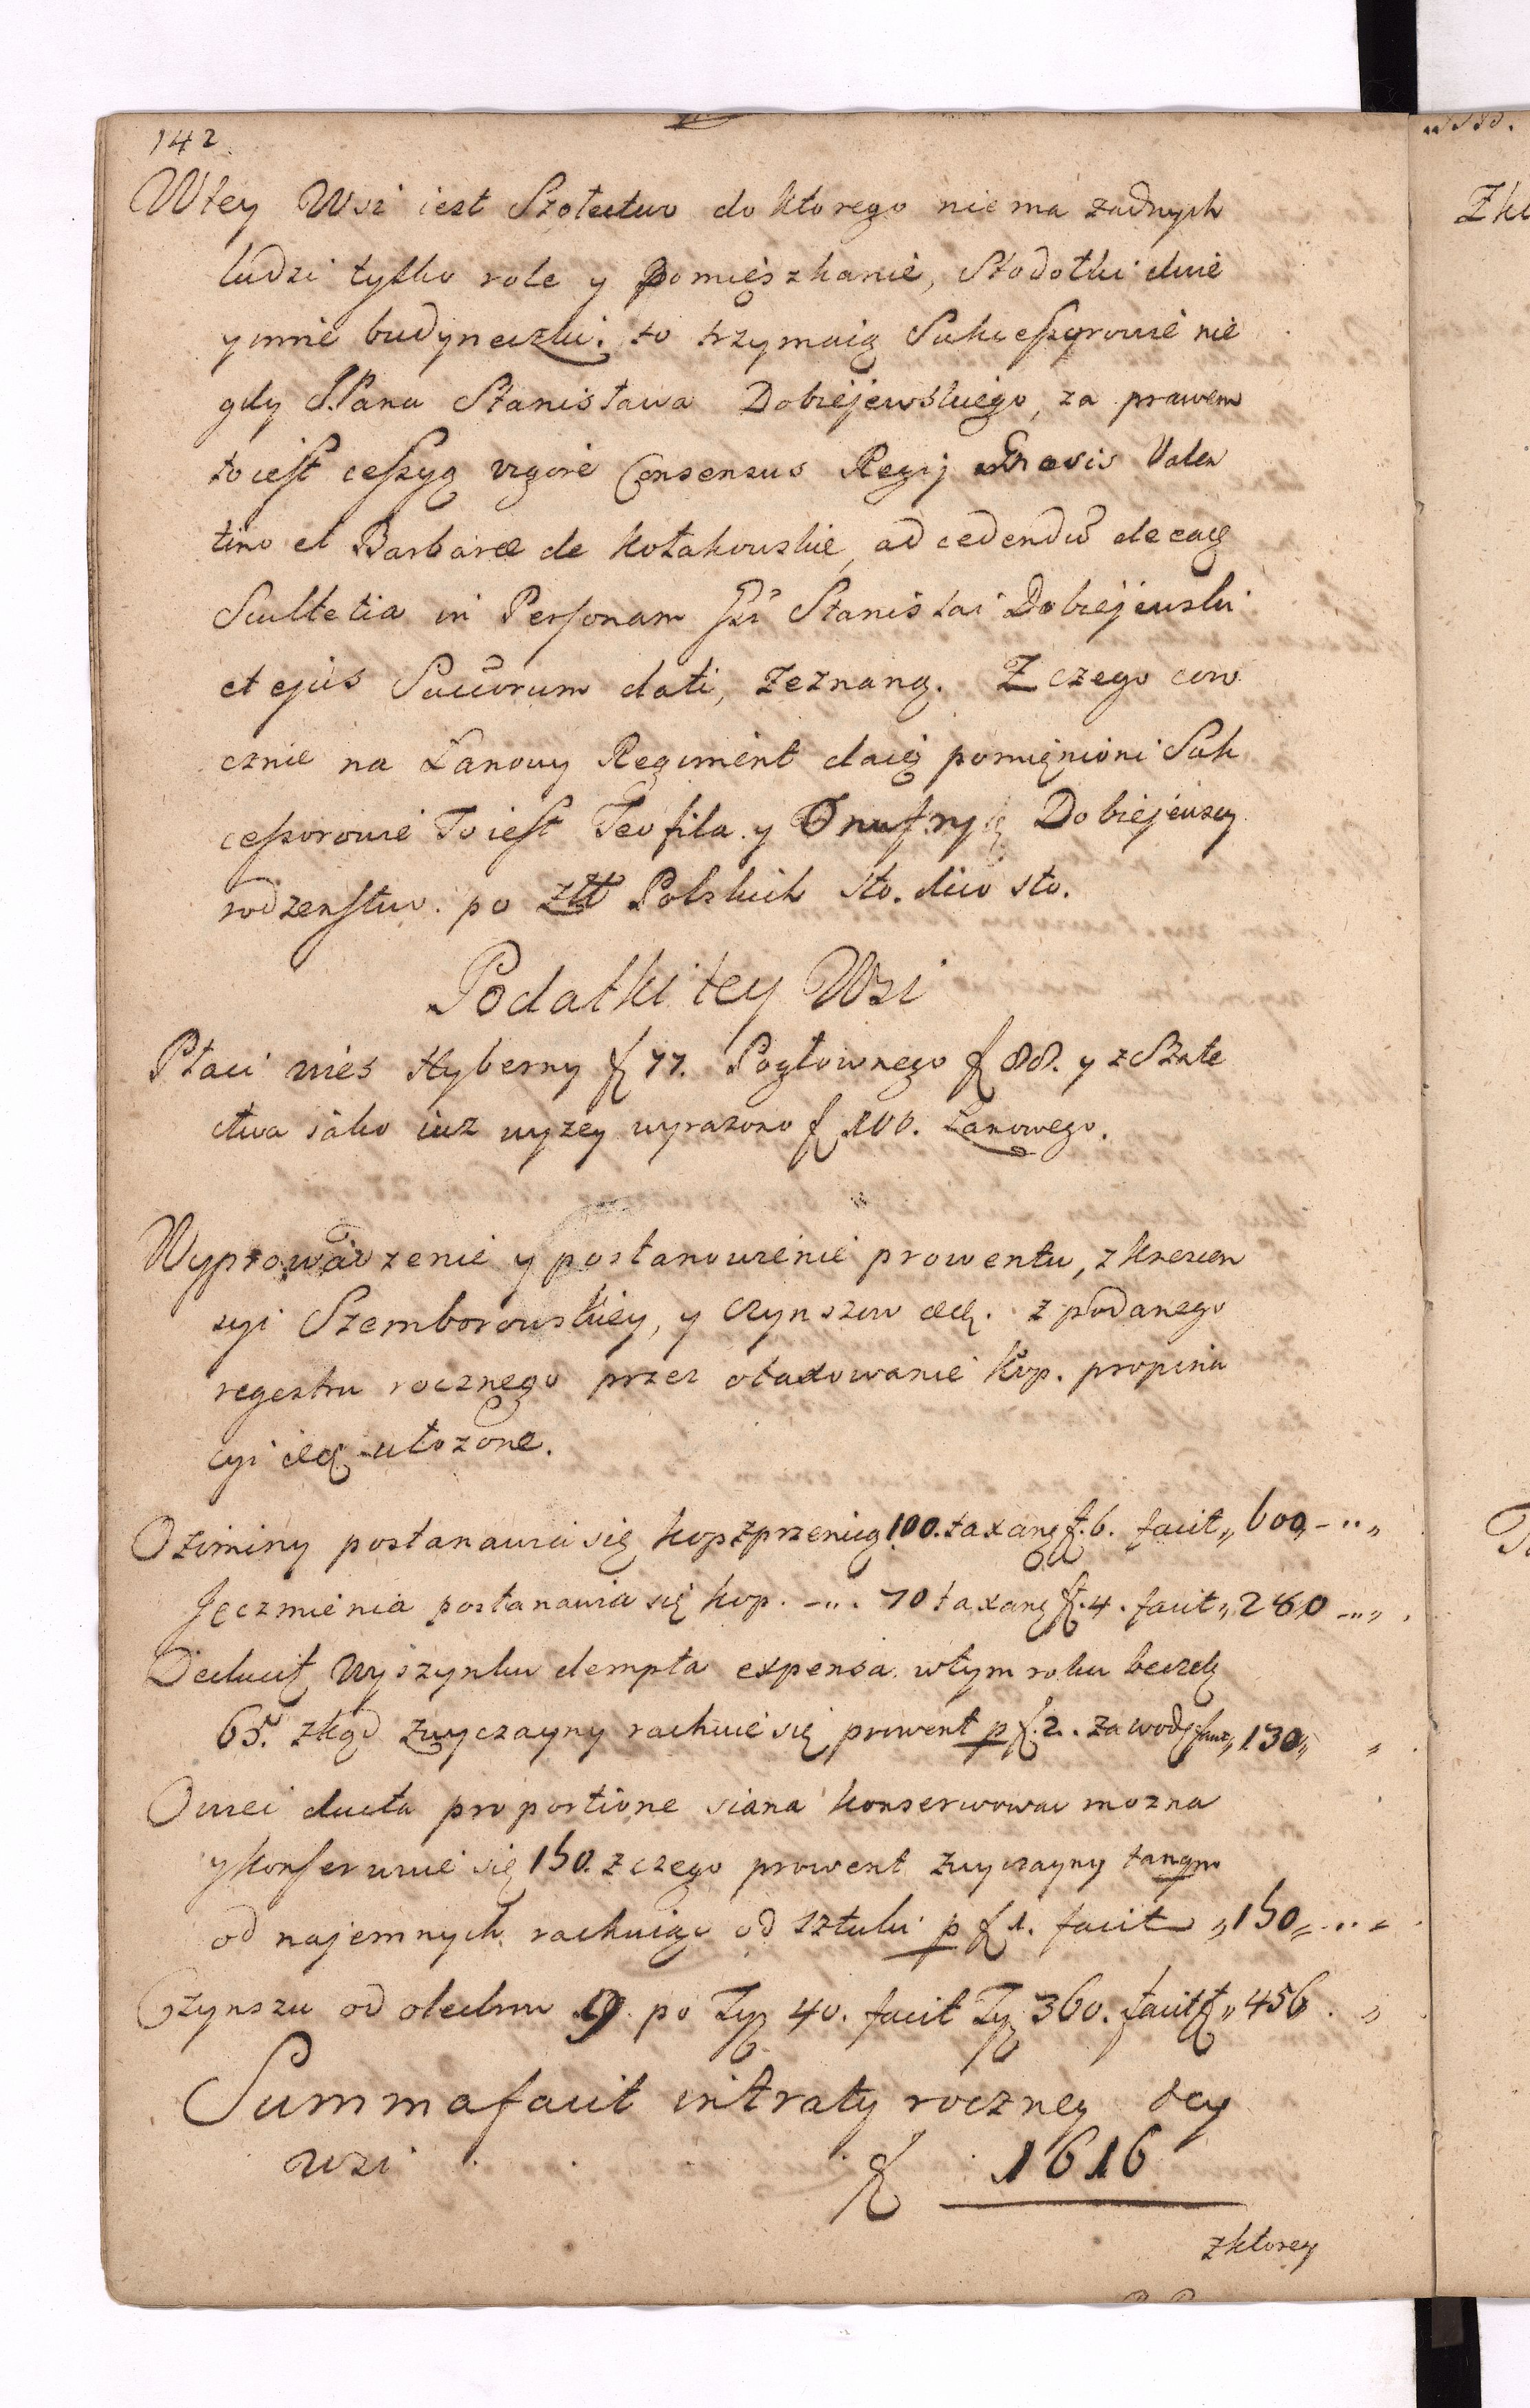 142
Wtey Wsi iest Szołectwo do ktorego nie ma zadnych
ludzi tylko role y pomieszkanie, Stodołki dwie
y inne budyneczki. to trzymaią Sukcessorowie nie
gdy Pana Stanisława Dobiejewskiego, za prawem
to iest cessyą vigore Consensus Regij Gnosis Valen
tino et Barbaræ de Kołakowskie, ad cedendũ de eadę
Scultetia in Personam Stanislai Dobiejewski
et ejus Succorum dati, zeznaną. Z czego coro
cznie na Łanowy Regiment daią pomięnioni Suk
cessorowie To iest Teofila y Onufry Dobiejewscy
rodzenstwo. po złł Polskich sto. dico sto.
Podatki tey Wsi
Płaci wies Hyberny f 77. Pogłownego f 88. y z Szołe
ctwa iako iuz wyzey wyrazono f 100. Łanowego.
Wyprowadzenie y postanowienie prowentu, z kresten
syi Szemborowskiey, y czynszow etc. z podanego
regestru rocznego przez otaxowanie kop. propina
cyi etc ułozone.
Oziminy postanawia się kop z pszenicą 100. taxaną f. 6. facit „ 600 - .. „
Jęczmienia postanawia się kop. - .. . 70 taxanę f. 4. facit „ 280 - .. „
Deducit Wyszynku dempta expensa wtym roku beczek
65. zkąd zwyczayny rachuie się prowent p f. 2. za wodę facit „ 130 „ „
Owiec ducta proportione siana konserwowac mozna
y konserwuie się 150. z czego prowent zwyczayny tanqm
od najemnych rachuiąc od sztuki p f 1. facit „ 150 „ .. „
Czynszu od olędrow 9 po Typ 40. facit Ty 360. facit f „ 456 . „
Summa facit intraty roczney tey
wsi . . . f 1616
z ktorey